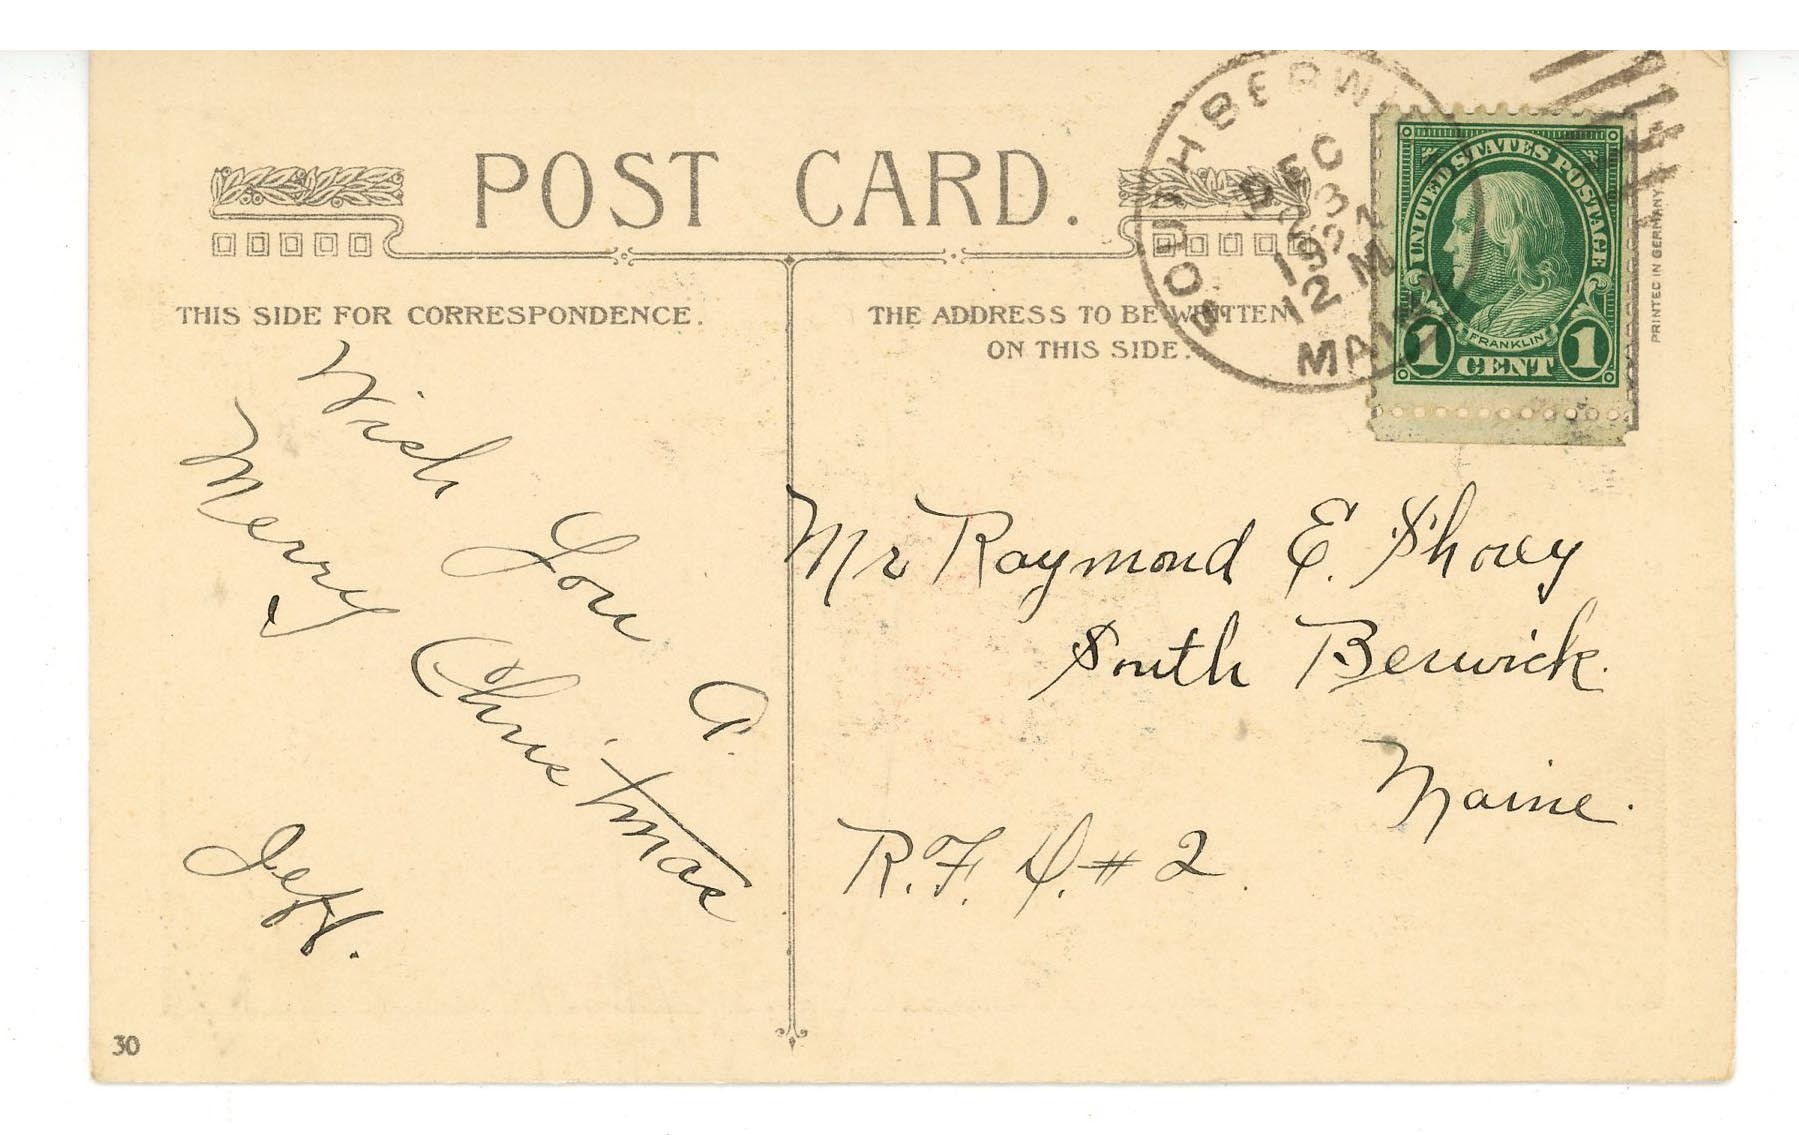 POST CARD.
THIS SIDE FOR CORRESPONDENCE.
THE ADDRESS TO BE WRITTEN
ON THIS SIDE.
DEC
23
12 M
MAINE
UNITED STATES POSTAGE
FRANKLIN
1 CENT 1
PRINTED IN GERMANY
Wish You A.
Merry Christmas
Jeff.
Mr Raymond E. Shorey
South Berwick.
Maine.
R.F.D. # 2.
30